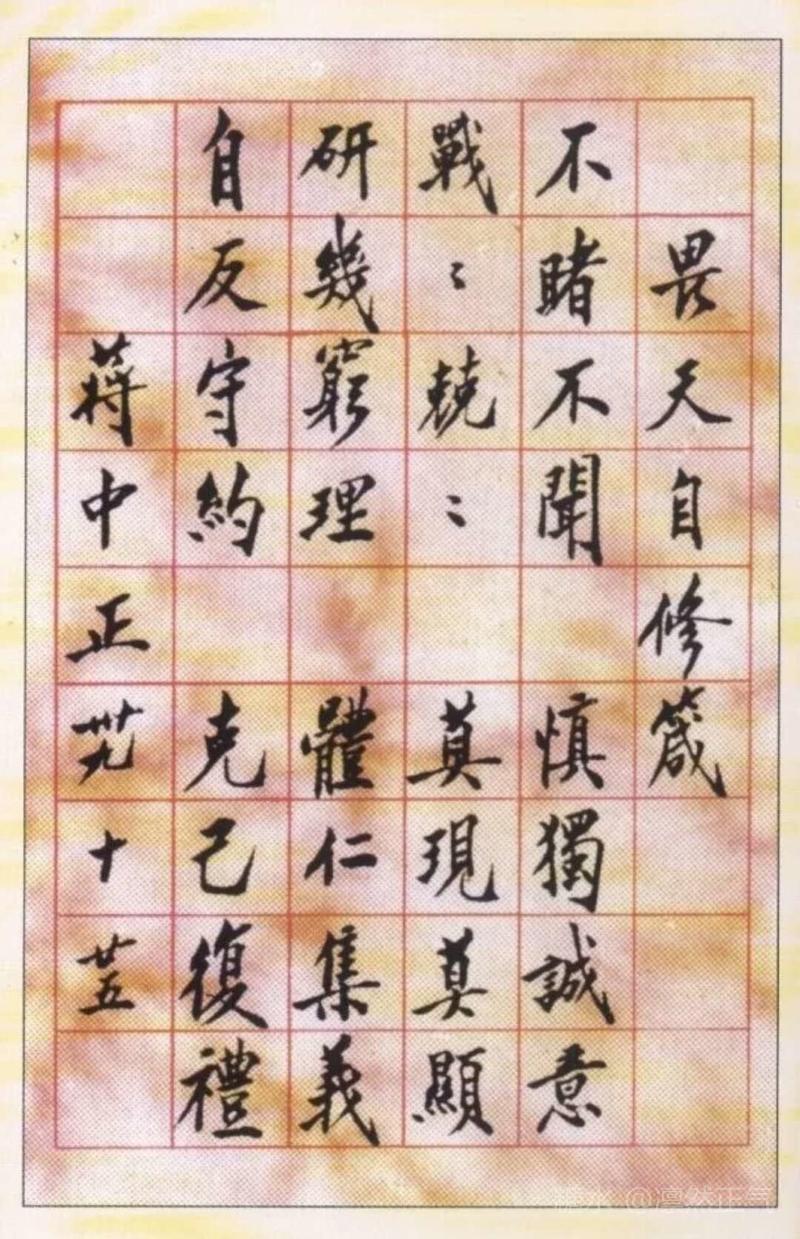 畏天自修箴
不睹不聞 慎獨誠意
戰〻兢〻 莫現莫顯
研幾窮理 體仁集義
自反守約 克己復禮
蔣中正 卅九 十 廿五
@凛然正气